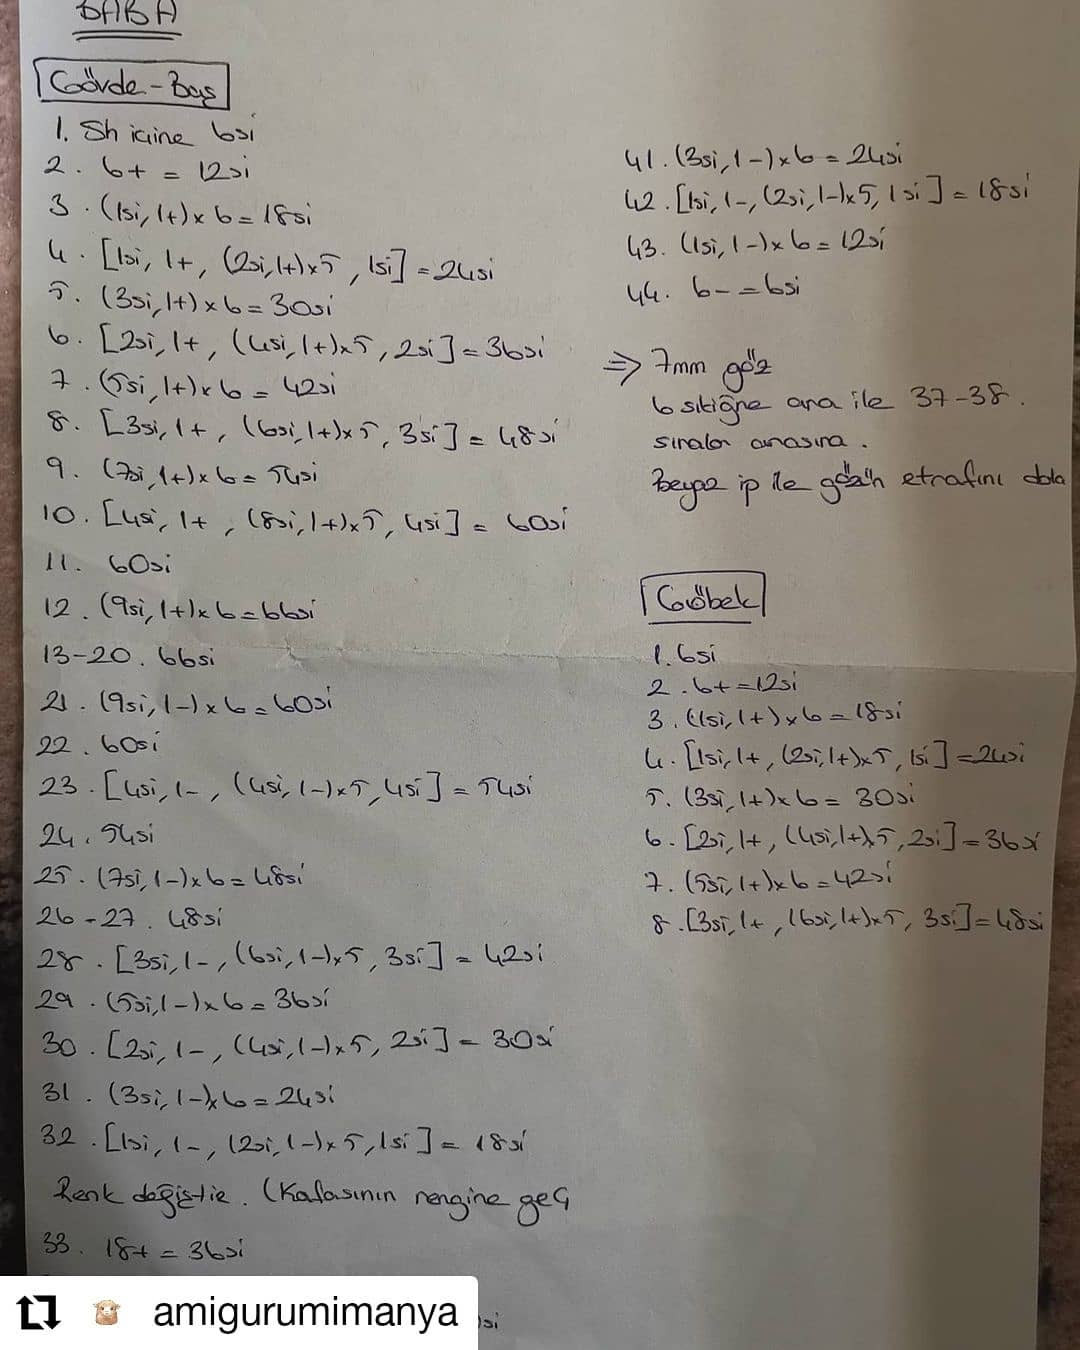 BABA
Gövde - Baş
1. Sh içine 6si
2. 6+ = 12si
3. (1si, 1+) x 6 = 18si
4. [1si, 1+, (2si, 1+)x5, 1si] = 24si
5. (3si, 1+) x 6 = 30si
6. [2si, 1+, (4si, 1+)x5, 2si] = 36si
7. (5si, 1+) x 6 = 42si
8. [3si, 1+, (6si, 1+)x5, 3si] = 48si
9. (7si, 1+) x 6 = 54si
10. [4si, 1+, (8si, 1+)x5, 4si] = 60si
11. 60si
12. (9si, 1+) x 6 = 66si
13-20. 66si
21. (9si, 1-) x 6 = 60si
22. 60si
23. [4si, 1-, (4si, 1-)x5, 4si] = 54si
24. 54si
25. (7si, 1-) x 6 = 48si
26-27. 48si
28. [3si, 1-, (6si, 1-)x5, 3si] = 42si
29. (5si, 1-) x 6 = 36si
30. [2si, 1-, (4si, 1-)x5, 2si] = 30si
31. (3si, 1-)x6 = 24si
32. [1si, 1-, (2si, 1-)x5, 1si] = 18si
Renk değiştir. (Kafasının rengine geç
33. 18+ = 36si
si
41. (3si, 1-) x 6 = 24si
42. [1si, 1-, (2si, 1-)x5, 1si] = 18si
43. (1si, 1-) x 6 = 12si
44. 6- = 6si
⇒ 7mm göz
6 sıkiğne ara ile 37-38.
sıralar arasına.
Beyaz ip ile gözün etrafını dola
Göbek
1. 6si
2. 6+ = 12si
3. (1si, 1+) x 6 = 18si
4. [1si, 1+, (2si, 1+)x5, 1si] = 24si
5. (3si, 1+) x 6 = 30si
6. [2si, 1+, (4si, 1+)x5, 2si] = 36si
7. (5si, 1+) x 6 = 42si
8. [3si, 1+, (6si, 1+)x5, 3si] = 48si
amigurumimanya